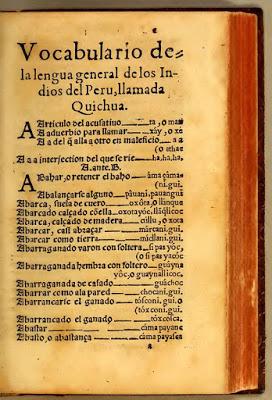 Vocabulario de-
la lengua general de los In-
dios del Peru, llamada
Quichua.
A Articulo del acusatiuo ra, o man
A aduerbio para llamar xây, o xe
A a del q̃ alla a otro en maleficio
A a a interjection del que se rie ha, ha, ha,
A. ante. B.
A Bahar, o retener el baho
Abalançarse alguno pâuani, pauangui
Abarca, suela de cuero oxôta, o llinque
Abarcado calçado cõella oxotayôc, llãqlicoc
Abarca, calçado de madera cullu, o xota
Abarcar, casi abraçar mârcani. gui.
Abarcar como tierra
Abarraganado varon con soltera si pas yôc,
(o si pas yacôc
Abarraganada hembra con soltero guâyna
yôc, o guaynallicoc
Abarraganada de casado guâchoc
Abarrar como ala pared chocâni. gui.
Abarrancarse el ganado tôsconi. gui. o
(tôxconi. gui.
Abarrancado el ganado tôxcolca
Abastar câma payane
Abasto, o abastança câma payasca
a